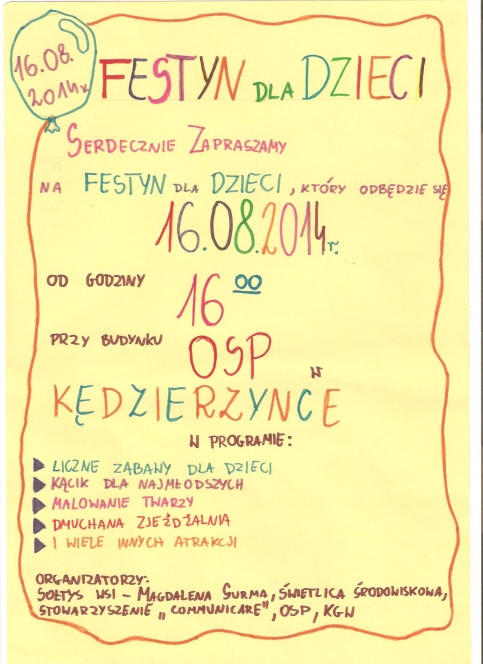 16.08.
2014r.
FESTYN DLA DZIECI
SERDECZNIE ZAPRASZAMY
NA FESTYN DLA DZIECI, KTÓRY ODBĘDZIE SIĘ
16.08.2014r.
OD GODZINY 16 00
PRZY BUDYNKU OSP W
KĘDZIERZYNCE
W PROGRAMIE:
▶ LICZNE ZABAWY DLA DZIECI
▶ KĄCIK DLA NAJMŁODSZYCH
▶ MALOWANIE TWARZY
▶ DMUCHANA ZJEŻDŻALNIA
▶ I WIELE INNYCH ATRAKCJI
ORGANIZATORZY:
SOŁTYS WSI – MAGDALENA SURMA, ŚWIETLICA ŚRODOWISKOWA,
STOWARZYSZENIE „COMMUNICARE", OSP, KGW